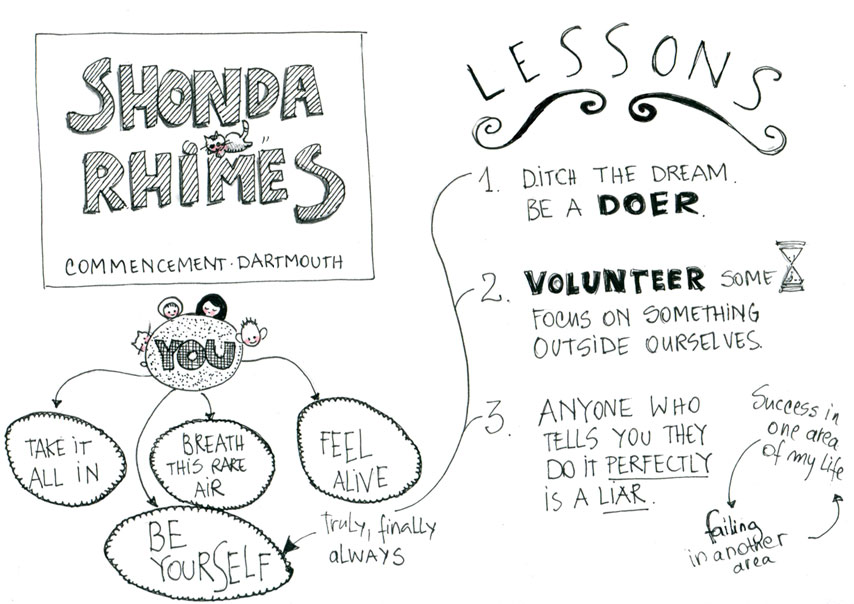 SHONDA
RHIMES
COMMENCEMENT · DARTMOUTH
YOU
TAKE IT
ALL IN
BREATH
THIS RARE
AIR
FEEL
ALIVE
BE
YOURSELF
truly, finally
ALWAYS
LESSONS
1. DITCH THE DREAM.
BE A DOER.
2. VOLUNTEER SOME
FOCUS ON SOMETHING
OUTSIDE OURSELVES.
3. ANYONE WHO
TELLS YOU THEY
DO IT PERFECTLY
IS A LIAR.
Success in
one area
of my life
failing
in another
area